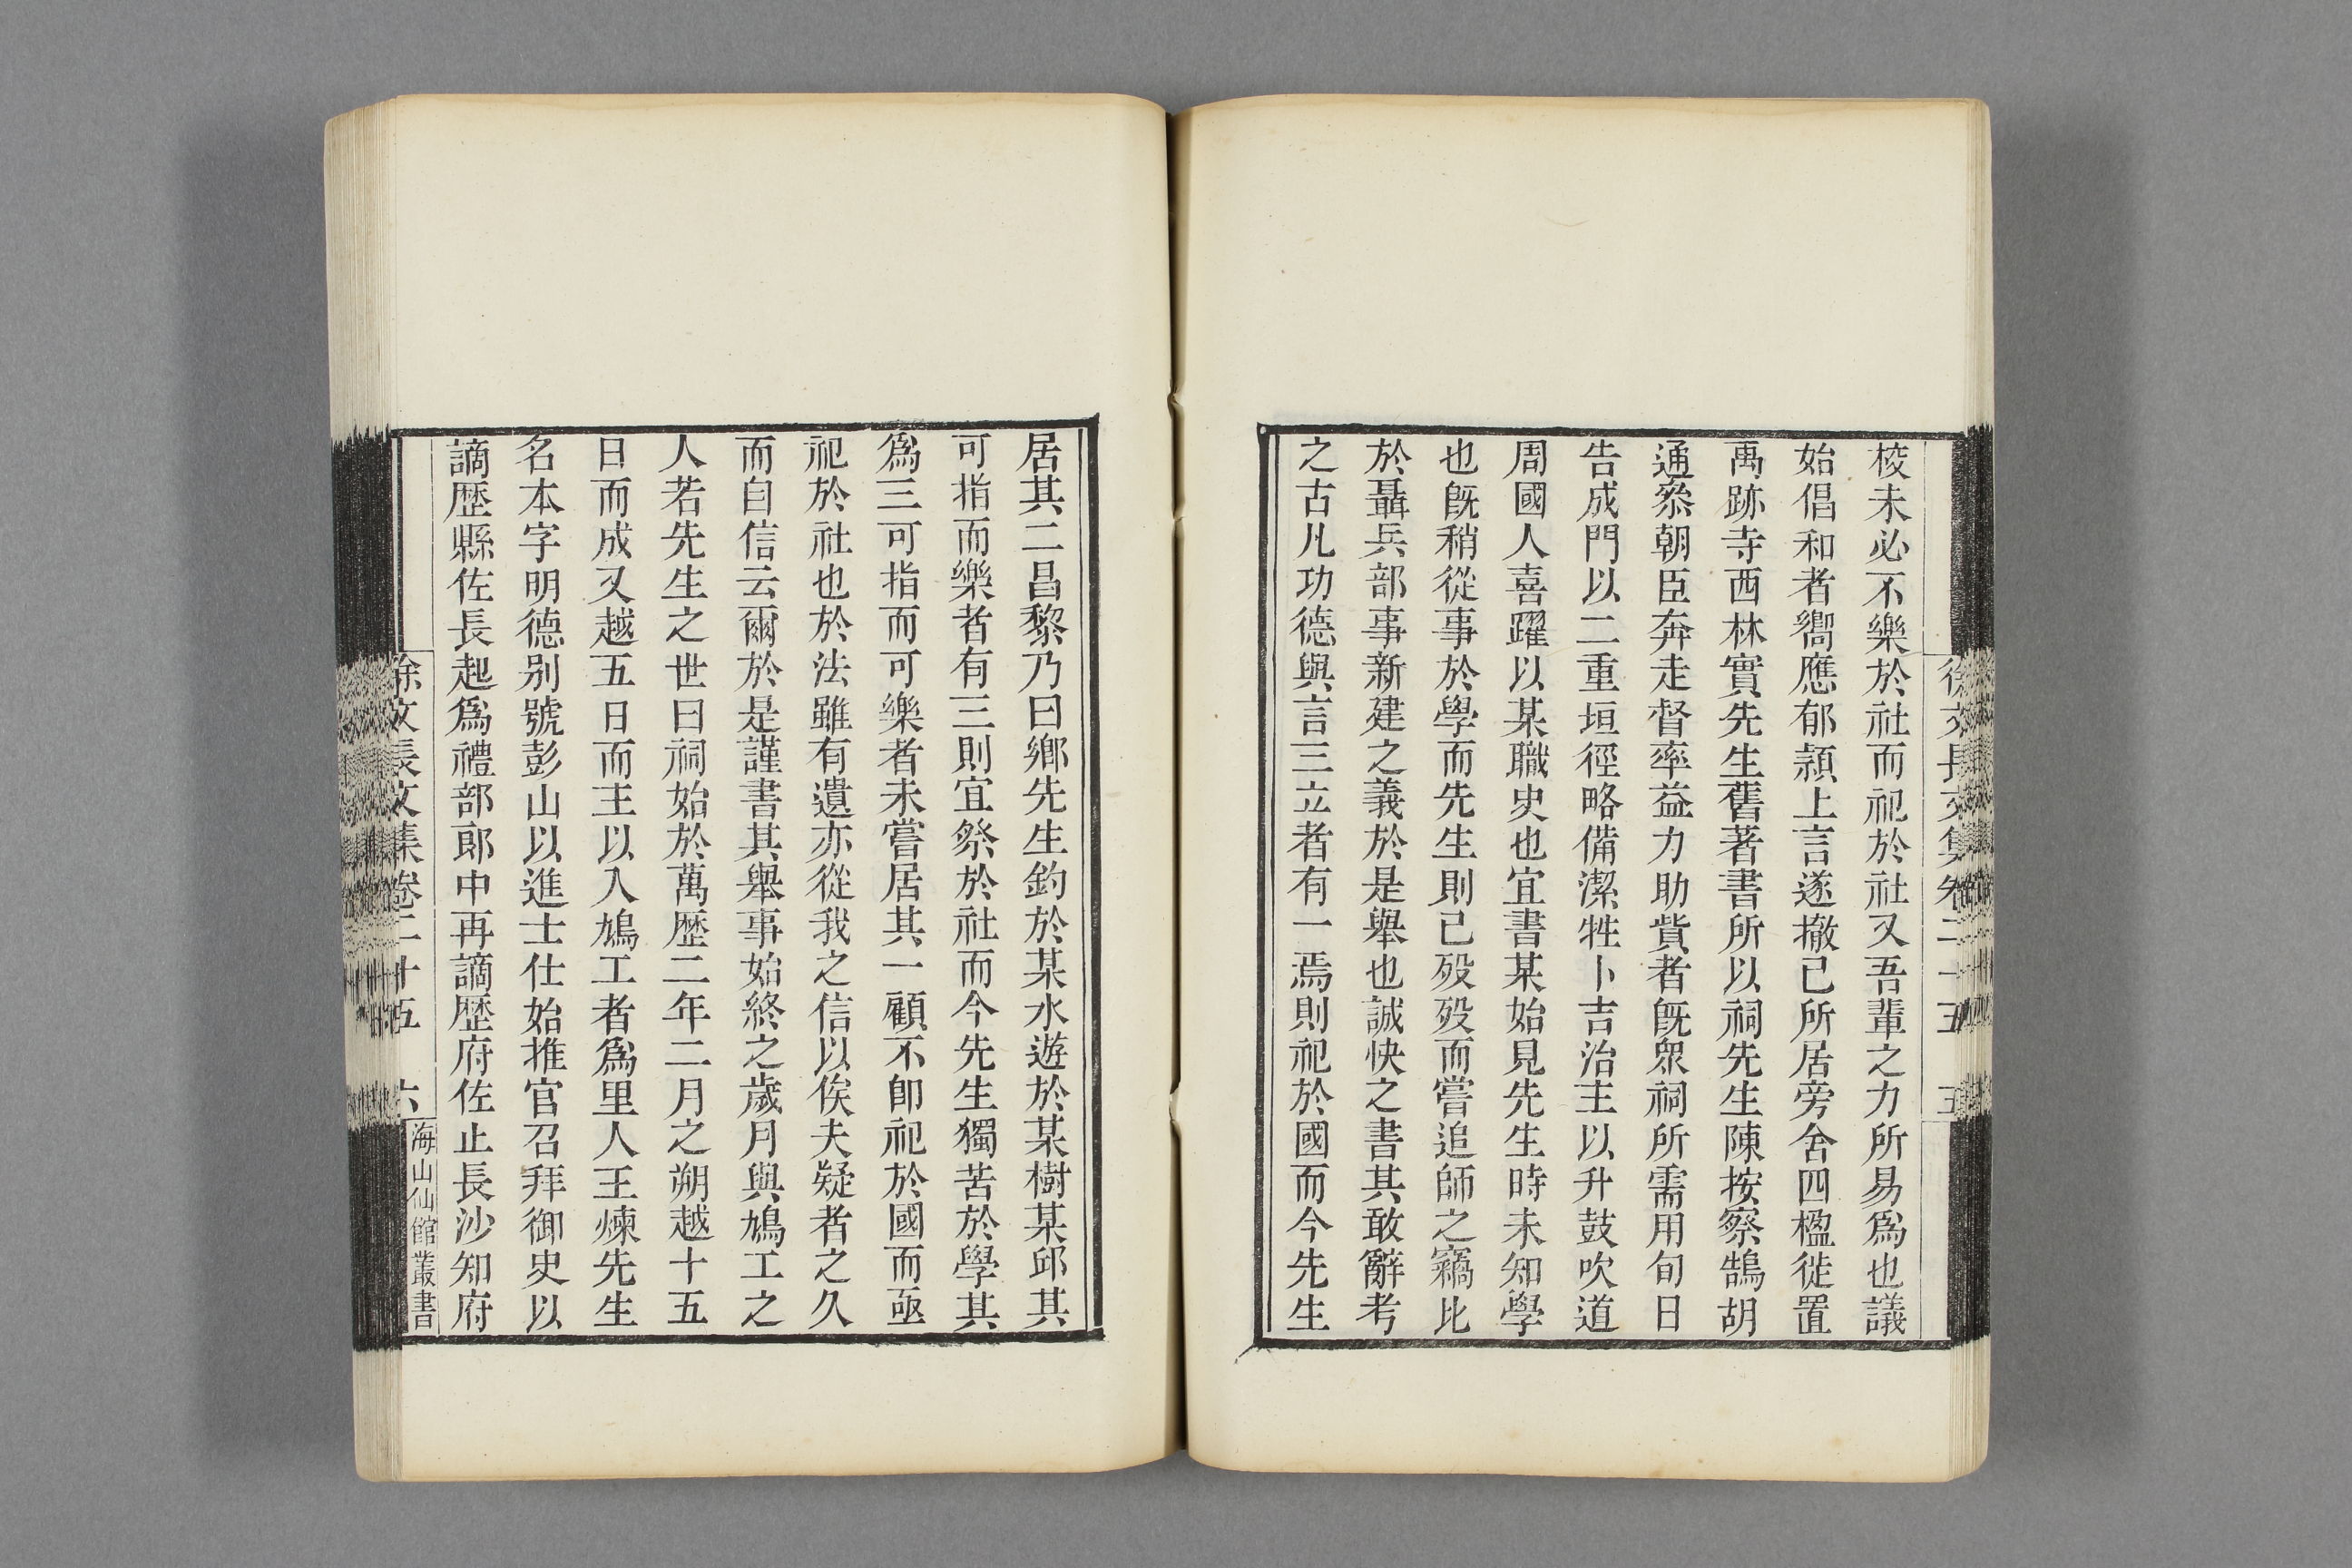 徐文長文集卷二十五 五
稜未必不樂於社而祀於社又吾輩之力所易爲也議
始倡和者嚮應郁潁上言遂撤已所居旁舍四楹徙置
禹跡寺西林實先生舊著書所以祠先生陳按察鵠胡
通叅朝臣奔走督率益力助貲者旣眾祠所需用旬日
告成門以二重垣徑略備潔牲卜吉治主以升鼓吹道
周國人喜躍以某職史也宜書某始見先生時未知學
也旣稍從事於學而先生則已歿歿而嘗追師之竊比
於聶兵部事新建之義於是舉也誠快之書其敢辭考
之古凡功德與言三立者有一焉則祀於國而今先生
居其二昌黎乃曰鄉先生釣於某水遊於某樹某邱其
可指而樂者有三則宜祭於社而今先生獨苦於學其
爲三可指而可樂者未嘗居其一顧不卽祀於國而亟
祀於社也於法雖有遺亦從我之信以俟夫疑者之久
而自信云爾於是謹書其舉事始終之歲月與鳩工之
人若先生之世曰祠始於萬歴二年二月之朔越十五
日而成又越五日而主以入鳩工者爲里人王煉先生
名本字明德别號彭山以進士仕始推官召拜御史以
謫歴縣佐長起爲禮部郎中再謫歴府佐止長沙知府
徐文長文集卷二十五 六
海山仙館叢書